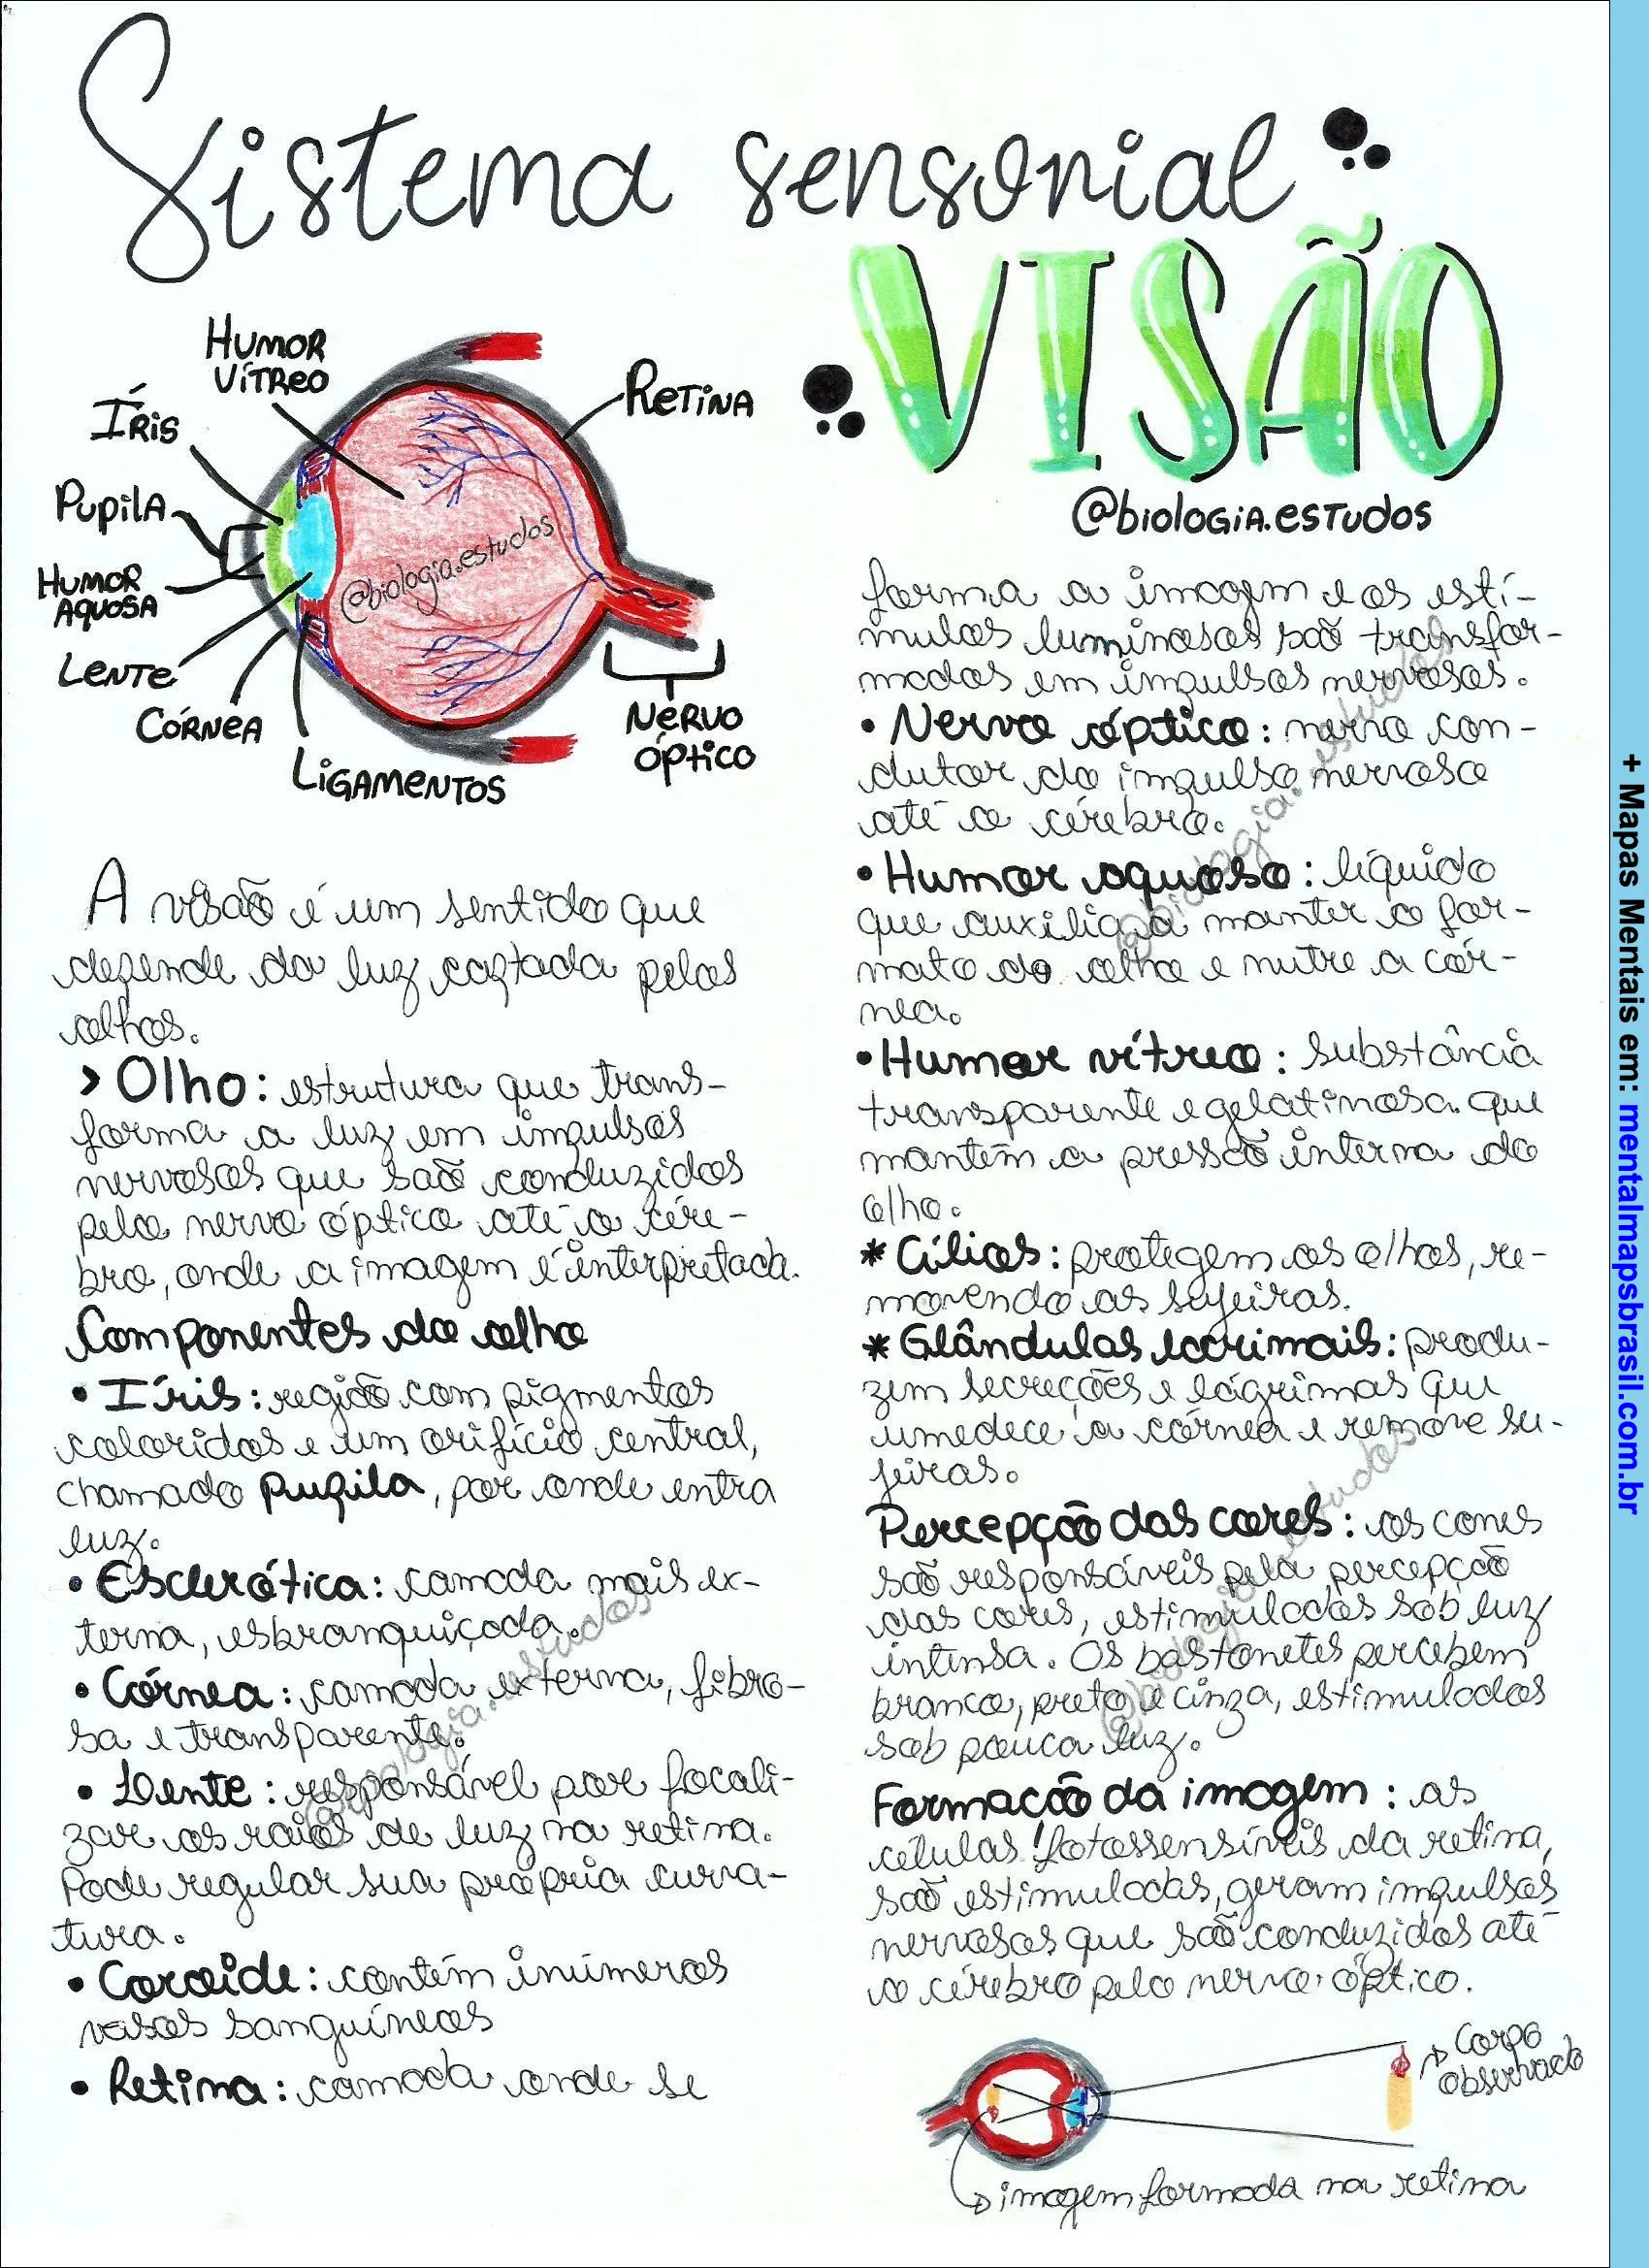 Sistema sensorial
VISÃO
@biologia.estudos
HUMOR
VÍTREO
ÍRIS
PUPILA
HUMOR
AQUOSA
LENTE
CÓRNEA
LIGAMENTOS
RETINA
NERVO
ÓPTICO
@biologia.estudos
A visão é um sentido que
depende da luz captada pelos
olhos.
> Olho: estrutura que trans-
forma a luz em impulsos
nervosos que são conduzidos
pelo nervo óptico até o cére-
bro, onde a imagem é interpretada.
Componentes do olho
• Íris: região com pigmentos
coloridos e um orifício central,
chamado pupila, por onde entra
luz.
• Esclerótica: camada mais ex-
terna, esbranquiçada.
• Córnea: camada externa, fibro-
sa e transparente.
• Lente: responsável por focali-
zar os raios de luz na retina.
Pode regular sua própria curva-
tura.
• Coroide: contém inúmeros
vasos sanguíneos
• Retina: camada onde se
@biologia.estudos
forma a imagem e os estí-
mulos luminosos são transfor-
mados em impulsos nervosos.
• Nervo óptico: nervo con-
dutor do impulso nervoso
até o cérebro.
• Humor aquoso: líquido
que auxilia a manter o for-
mato do olho e nutre a cór-
nea.
• Humor vítreo: substância
transparente e gelatinosa que
mantém a pressão interna do
olho.
* Cílios: protegem os olhos, re-
movendo as sujeiras.
* Glândulas lacrimais: produ-
zem secreções e lágrimas que
umedece a córnea e remove su-
jeiras.
Percepção das cores: os cones
são responsáveis pela percepção
das cores, estimulados sob luz
intensa. Os bastonetes percebem
branco, preto e cinza, estimulados
sob pouca luz.
Formação da imagem: as
células fotossensíveis da retina,
são estimuladas, geram impulsos
nervosos que são conduzidos até
o cérebro pelo nervo óptico.
@biologia.estudos
@biologia.estudos
Corpo
observado
imagem formada na retina
+ Mapas Mentais em: mentalmapsbrasil.com.br